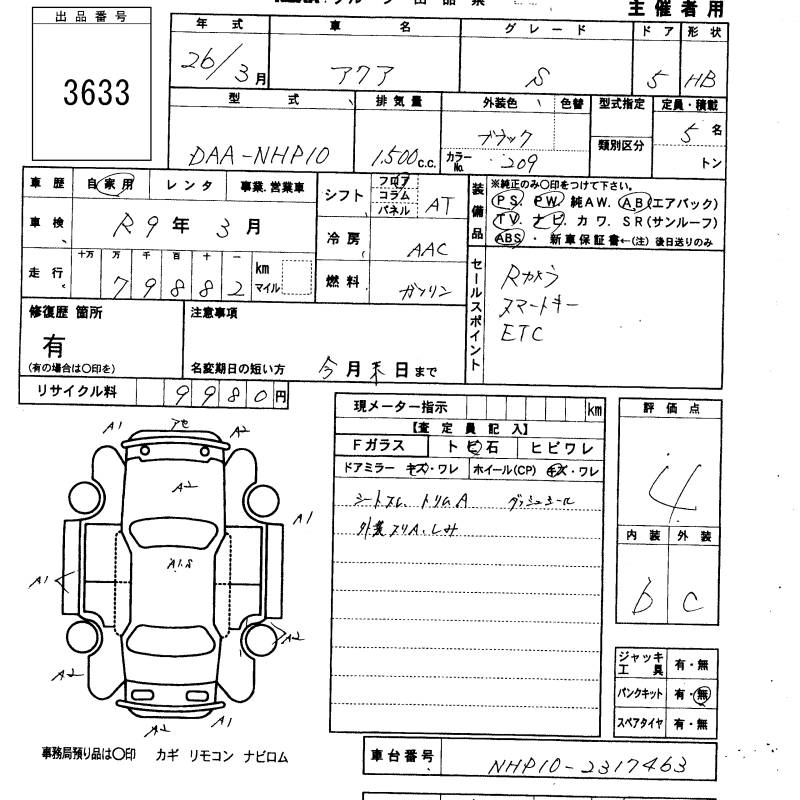 主催者用
出品番号
3633
年式 車名 グレード ドア 形状
26/3月 アクア S 5 HB
型式 排気量 外装色 色替 型式指定 定員・積載
類別区分
DAA-NHP10 1,500 c.c. ブラック 5名
カラーNo. 209 トン
車歴 自家用 レンタ 事業.営業車
車検 R9年3月
走行 十万 万 千 百 十 一
79882 km マイル
シフト フロア コラム パネル AT
冷房 AAC
燃料 ガソリン
装備品 ※純正のみ○印をつけて下さい。
PS. PW. 純AW. AB(エアバック)
TV. ナビ. カワ. SR(サンルーフ)
ABS・ 新車保証書←(注)後日送りのみ
セールスポイント
Rカメラ
スマートキー
ETC
修復歴 箇所
有
(有の場合は○印を)
注意事項
名変期日の短い方 今月末日まで
リサイクル料 9980円
現メーター指示 km
【査定員記入】
Fガラス ト ビ 石 ヒビワレ
ドアミラー キズ・ワレ ホイール(CP) キズ・ワレ
シートスレ トリムA
外装スリA.しみ
評価点
4
内装 外装
b c
A1 A2
A2
A1
A1
A2
A2
A2 A1
ジャッキ工具 有・無
パンクキット 有・無
スペアタイヤ 有・無
事務局預り品は○印 カギ リモコン ナビロム
車台番号 NHP10-2317463